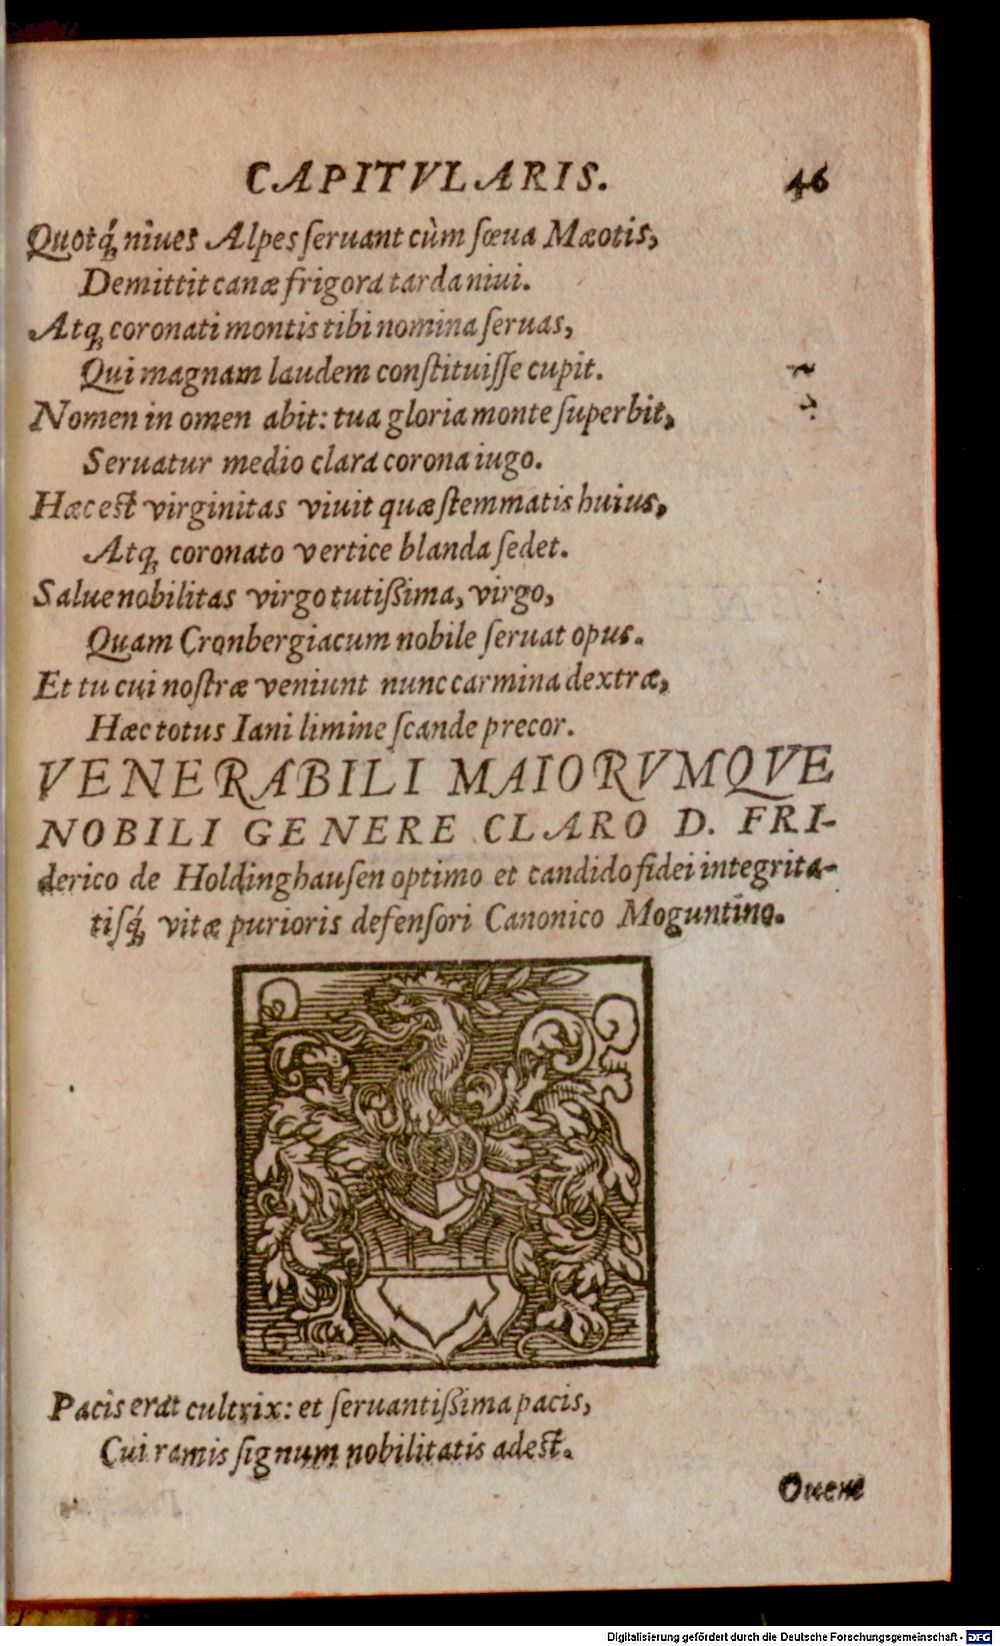 CAPITVLARIS. 46
Quotq́; niues Alpes ſeruant cùm ſœua Mæotis,
Demittit canæ frigora tarda niui.
Atq; coronati montis tibi nomina ſeruas,
Qui magnam laudem conſtituiſſe cupit.
Nomen in omen abit: tua gloria monte ſuperbit,
Seruatur medio clara corona iugo.
Hæc est virginitas viuit quæ ſtemmatis huius,
Atq; coronato vertice blanda ſedet.
Salue nobilitas virgo tutiſſima, virgo,
Quam Cronbergiacum nobile ſeruat opus.
Et tu cui noſtræ veniunt nunc carmina dextræ,
Hæc totus Iani limine ſcande precor.
VENERABILI MAIORVMQVE
NOBILI GENERE CLARO D. FRI-
derico de Holdinghauſen optimo et candido fidei integrita-
tiſq́; vitæ purioris defenſori Canonico Moguntino.
Pacis erat cultrix: et ſeruantiſſima pacis,
Cui ramis ſignum nobilitatis adeſt.
Digitalisierung gefördert durch die Deutsche Forschungsgemeinschaft - DFG